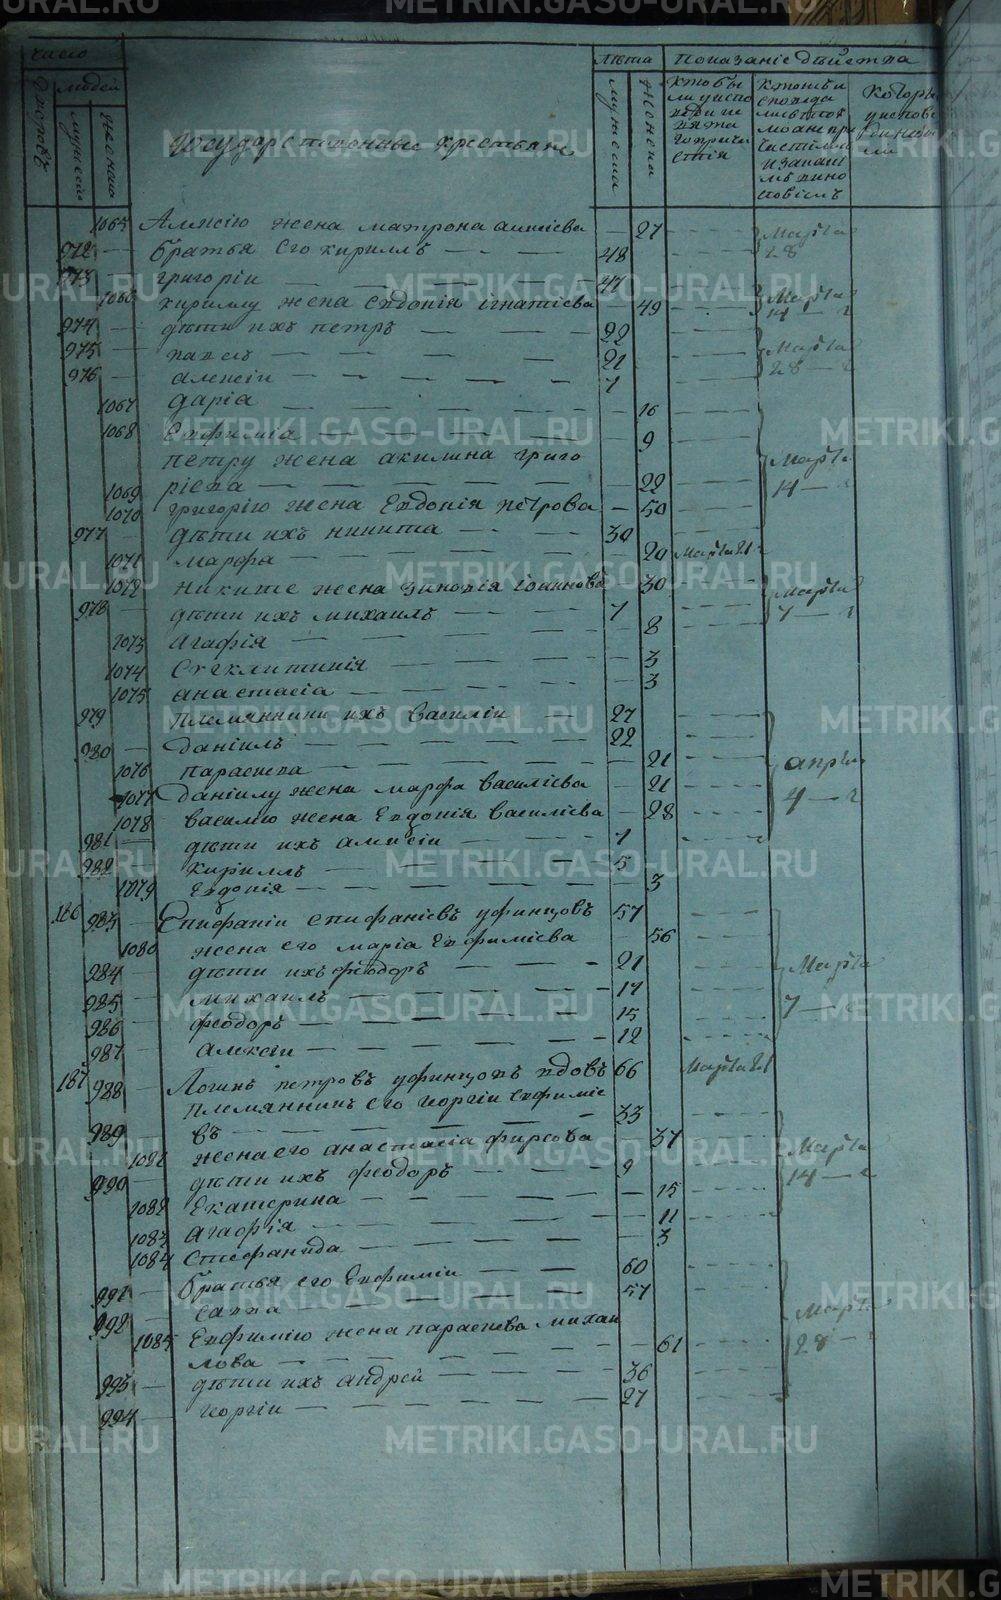 число
людей
лѣта
показаніе дѣйства
дворовъ
мужеска
женска
мужеска
женска
кто бы
Государственные крестьяне
1065 Алексію жена матрона алексіева — 27 Марта
972 — братья его кириллъ — — 48 28
973 — григоріи — — — 44
1066 кириллу жена евдокія игнатіева 49 Марта
974 — дѣти ихъ петръ — — — 22 14 —
975 — павелъ — — — 21 Марта
976 — алексіи — — — 7 28 —
1067 дарія — — — 16
1068 Евфимія — — — 9
петру жена акилина григо Марта
1069 ріева — — — 22 14 —
1070 григорію жена Евдокія петрова — 50
977 — дѣти ихъ никита — — 30
1071 марфа — — — 20 Марта 21
1072 никите жена зиновія іоаннова — 30 Марта
978 — дѣти ихъ михаилъ — — 7 7 —
1073 агафія — — — 8
1074 Сѵгклитикія — — — 3
1075 анастасіа — — — 3
979 племянники ихъ василіи — 27
980 — даніилъ — — — 22
1076 параскева — — — 21 апрѣля
1077 даніилу жена марфа василіева — 21 4 —
1078 василію жена Евдокія василіева — 28
981 — дѣти ихъ алексіи — — 7
982 кириллъ — — — 5
1079 Евдокія — — — 3
186 983 — Епифаніи епифаніевъ уфинцовъ 57
1080 жена его маріа Евфиміева 56
984 — дѣти ихъ феодоръ — — 21 Марта
985 — михаилъ — — — 17 7 —
986 — феодоръ — — — 15
987 — алексіи — — — 12
187 988 — Логинъ петровъ уфинцовъ вдовъ 66 Марта 21
племянникъ его георгіи евфиміе
989 въ — — — 33
1081 жена его анастасіа фирсова 37 Марта
990 — дѣти ихъ феодоръ — — 9 14 —
1082 Екатерина — — — 15
1083 агафія — — — 11
1084 стефанида — — — 3
991 — братья его Евфиміи — — 60
992 — савва — — — 57 Марта
1085 Евфимію жена параскева михаи 28 —
лова — — — 61
993 — дѣти ихъ андрей — — 36
994 — георгіи — — — 27
METRIKI.GASO-URAL.RU